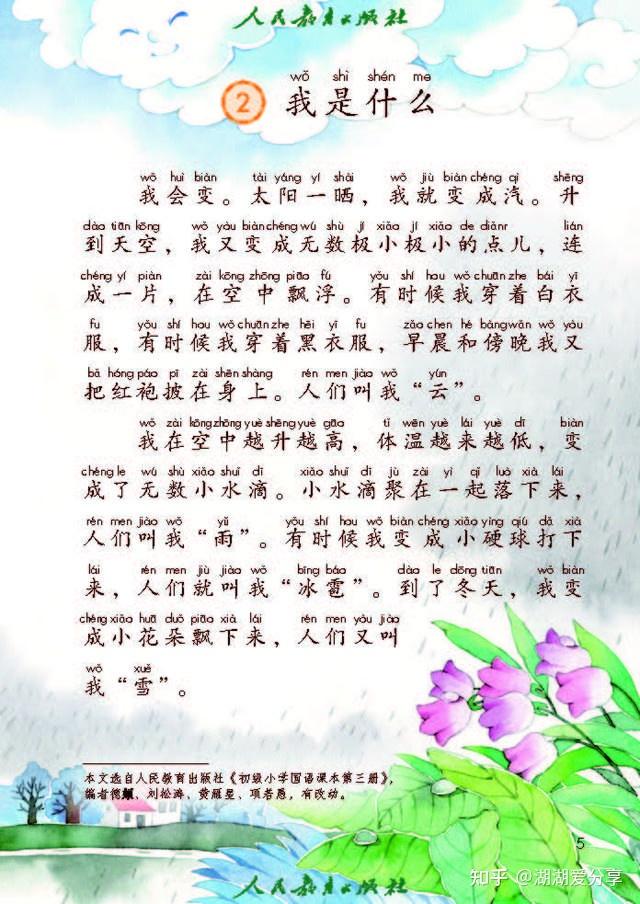 人民教育出版社
wǒ shì shén me
2 我是什么
wǒ huì biàn tài yáng yí shài wǒ jiù biàn chéng qì shēng
我会变。太阳一晒，我就变成汽。升
dào tiān kōng wǒ yòu biàn chéng wú shù jí xiǎo jí xiǎo de diǎnr lián
到天空，我又变成无数极小极小的点儿，连
chéng yí piàn zài kōng zhōng piāo fú yǒu shí hou wǒ chuān zhe bái yī
成一片，在空中飘浮。有时候我穿着白衣
fu yǒu shí hou wǒ chuān zhe hēi yī fu zǎo chen hé bàng wǎn wǒ yòu
服，有时候我穿着黑衣服，早晨和傍晚我又
bǎ hóng páo pī zài shēn shàng rén men jiào wǒ yún
把红袍披在身上。人们叫我“云”。
wǒ zài kōng zhōng yuè shēng yuè gāo tǐ wēn yuè lái yuè dī biàn
我在空中越升越高，体温越来越低，变
chéng le wú shù xiǎo shuǐ dī xiǎo shuǐ dī jù zài yì qǐ luò xià lái
成了无数小水滴。小水滴聚在一起落下来，
rén men jiào wǒ yǔ yǒu shí hou wǒ biàn chéng xiǎo yìng qiú dǎ xià
人们叫我“雨”。有时候我变成小硬球打下
lái rén men jiù jiào wǒ bīng báo dào le dōng tiān wǒ biàn
来，人们就叫我“冰雹”。到了冬天，我变
chéng xiǎo huā duǒ piāo xià lái rén men yòu jiào
成小花朵飘下来，人们又叫
wǒ xuě
我“雪”。
本文选自人民教育出版社《初级小学国语课本第三册》，
编者德颙、刘松涛、黄雁星、项若愚，有改动。
5
知乎 @湖湖爱分享
人民教育出版社